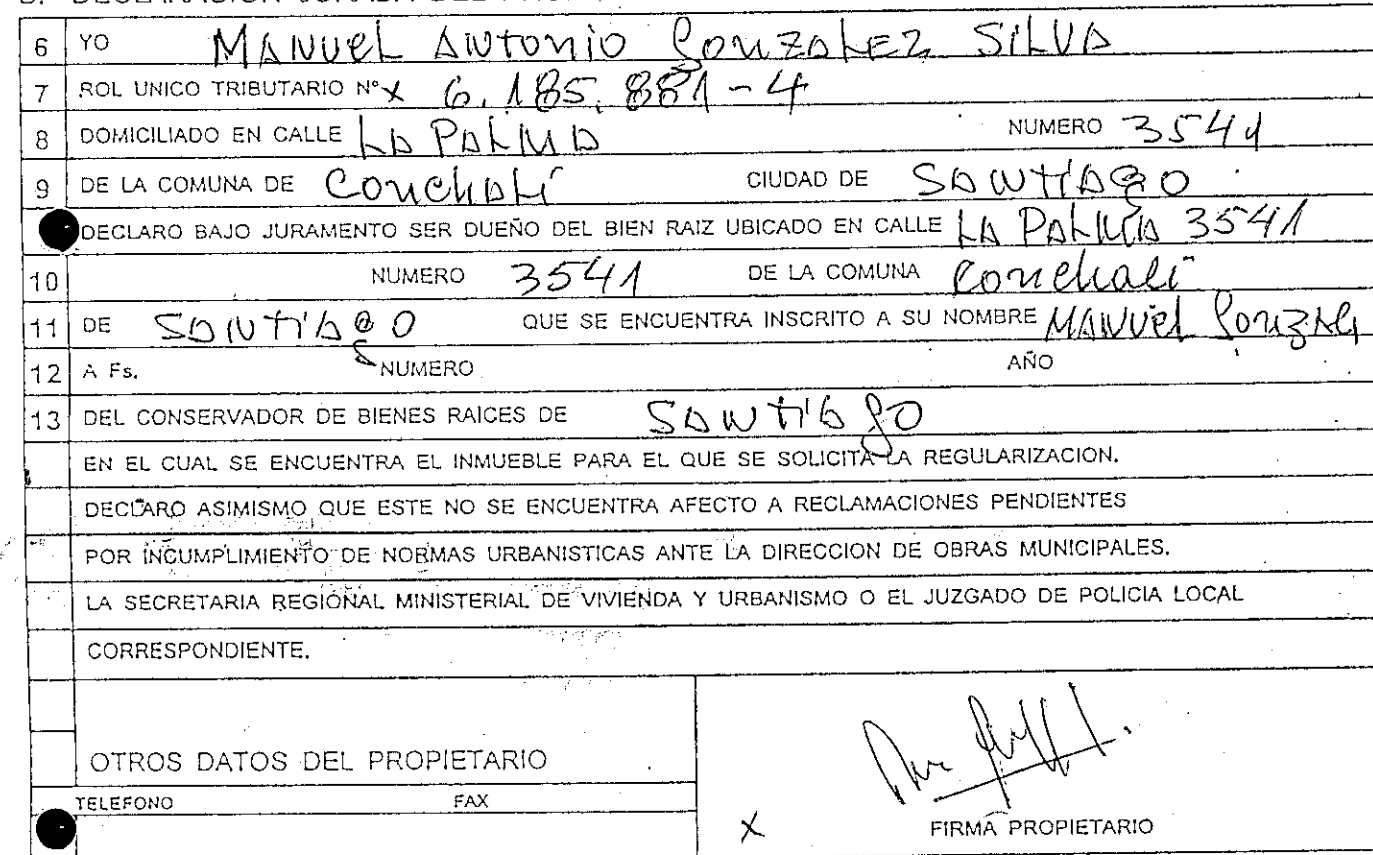 6 YO MANUEL ANTONIO GONZALEZ SILVA
7 ROL UNICO TRIBUTARIO N° x 6.185.881-4
8 DOMICILIADO EN CALLE LA PALMA NUMERO 3541
9 DE LA COMUNA DE Conchalí CIUDAD DE SANTIAGO
DECLARO BAJO JURAMENTO SER DUEÑO DEL BIEN RAIZ UBICADO EN CALLE LA PALMA 3541
10 NUMERO 3541 DE LA COMUNA Conchalí
11 DE SANTIAGO QUE SE ENCUENTRA INSCRITO A SU NOMBRE MANUEL
12 A Fs. NUMERO AÑO
13 DEL CONSERVADOR DE BIENES RAICES DE SANTIAGO
EN EL CUAL SE ENCUENTRA EL INMUEBLE PARA EL QUE SE SOLICITA LA REGULARIZACION.
DECLARO ASIMISMO QUE ESTE NO SE ENCUENTRA AFECTO A RECLAMACIONES PENDIENTES
POR INCUMPLIMIENTO DE NORMAS URBANISTICAS ANTE LA DIRECCION DE OBRAS MUNICIPALES.
LA SECRETARIA REGIONAL MINISTERIAL DE VIVIENDA Y URBANISMO O EL JUZGADO DE POLICIA LOCAL
CORRESPONDIENTE.
OTROS DATOS DEL PROPIETARIO
TELEFONO FAX
x FIRMA PROPIETARIO